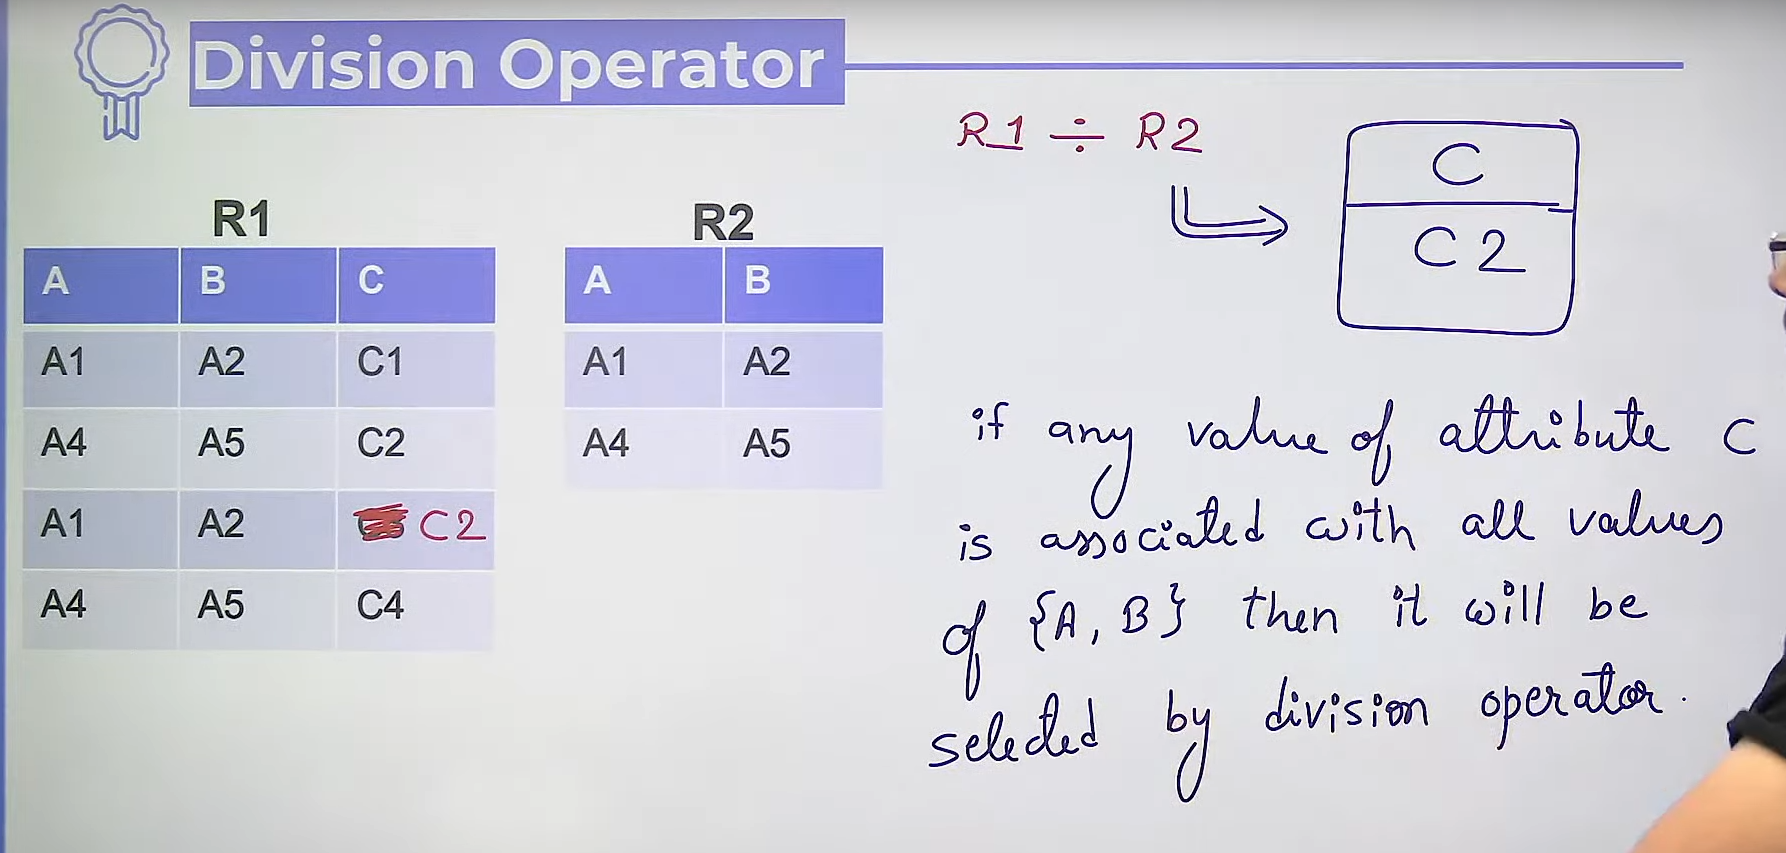 Division Operator
R1 ÷ R2
C
C2
R1
A B C
A1 A2 C1
A4 A5 C2
A1 A2 C2
A4 A5 C4
R2
A B
A1 A2
A4 A5
if any value of attribute C
is associated with all values
of {A, B} then it will be
selected by division operator.